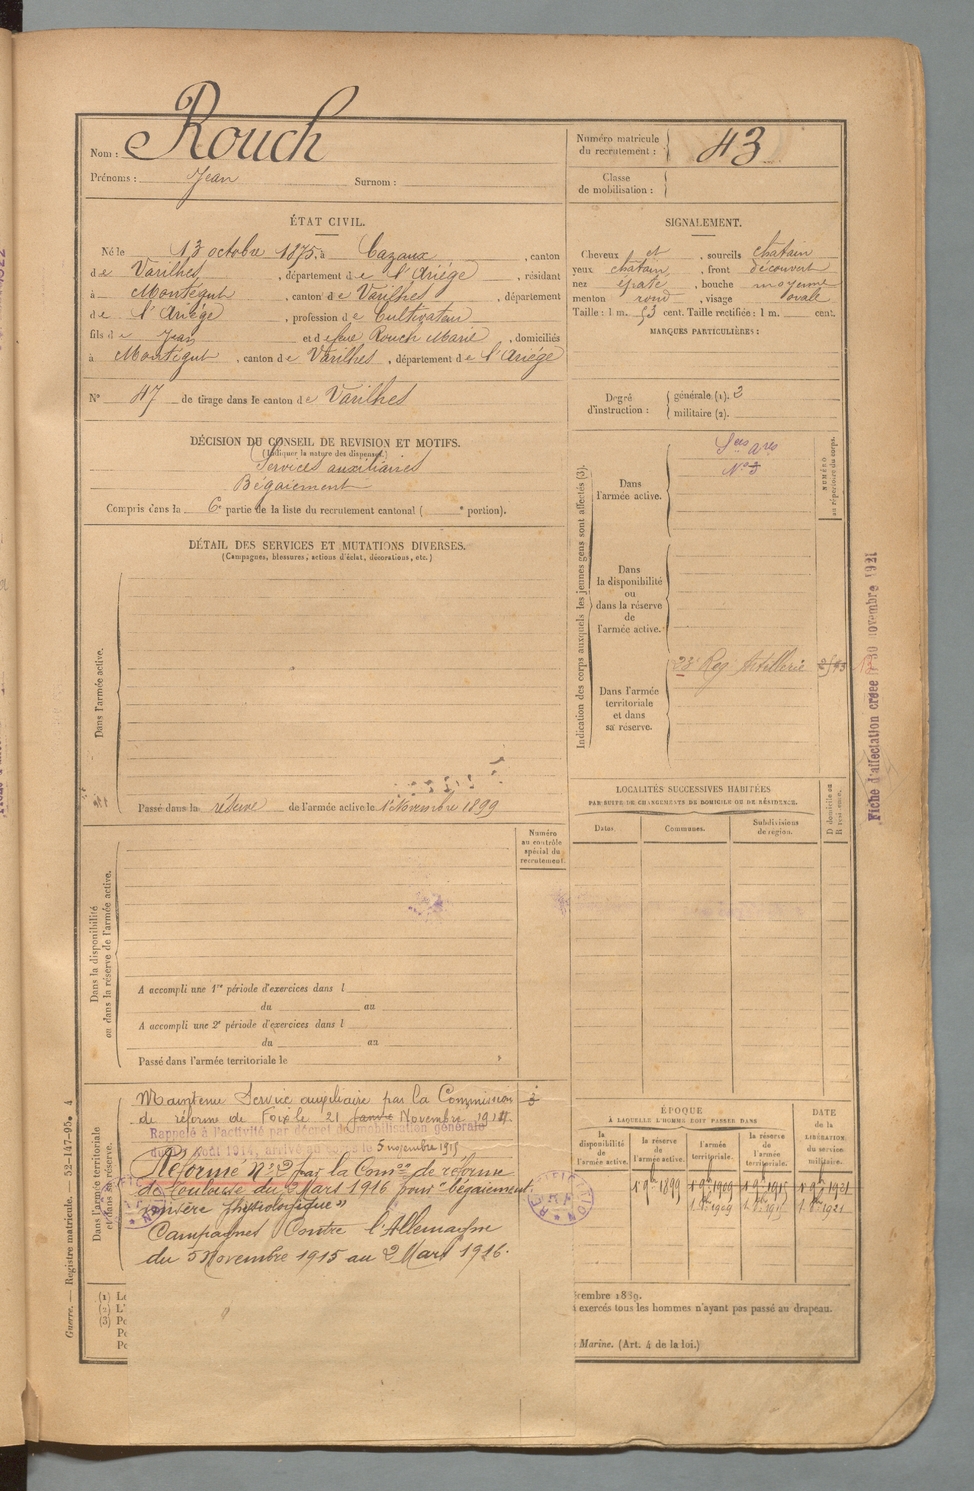 Nom : Rouch
Prénoms : Jean Surnom :
Numéro matricule du recrutement : 43
Classe de mobilisation :
ÉTAT CIVIL.
Né le 13 octobre 1875, à Cazaux, canton
de Varilhes, département de l'Ariége, résidant
à Montégut, canton de Varilhes, département
de l'Ariége, profession de Cultivateur
fils de Jean et de feue Rouch Marie, domiciliés
à Montégut, canton de Varilhes, département de l'Ariége
N° 47 de tirage dans le canton de Varilhes
SIGNALEMENT.
Cheveux et, sourcils chatain
yeux chatain, front découvert
nez épaté, bouche moyenne
menton rond, visage ovale
Taille : 1 m. 53 cent. Taille rectifiée : 1 m. cent.
MARQUES PARTICULIÈRES :
Degré d'instruction : générale (1). 2
militaire (2).
DÉCISION DU CONSEIL DE REVISION ET MOTIFS.
(Indiquer la nature des dispenses.)
Services auxiliaires
Bégaiement
Compris dans la 6e partie de la liste du recrutement cantonal ( e portion).
DÉTAIL DES SERVICES ET MUTATIONS DIVERSES.
(Campagnes, blessures, actions d'éclat, décorations, etc.)
Dans l'armée active.
Passé dans la réserve de l'armée active le 1er Novembre 1899
Indication des corps auxquels les jeunes gens sont affectés (3).
NUMÉRO au répertoire du corps.
Dans l'armée active.
Sces ares
N° 3
Dans la disponibilité ou dans la réserve de l'armée active.
Dans l'armée territoriale et dans sa réserve.
23e Reg Artillerie
Fiche d'affectation créée 30 novembre 1921
LOCALITÉS SUCCESSIVES HABITÉES
PAR SUITE DE CHANGEMENTS DE DOMICILE OU DE RÉSIDENCE.
Dates. Communes. Subdivisions de région. D domicile ou R résidence.
Numéro au contrôle spécial du recrutement.
Dans la disponibilité ou dans la réserve de l'armée active.
A accompli une 1re période d'exercices dans l
du au
A accompli une 2e période d'exercices dans l
du au
Passé dans l'armée territoriale le
Dans l'armée territoriale et dans sa réserve.
Maintenu Service auxiliaire par la Commission
de réforme de Foix le 21 Novembre 1914
Rappelé à l'activité par décret de mobilisation générale
du 1er Août 1914, arrivé au corps le 5 novembre 1915
Réformé N° 2 par la Comon de réforme
de Toulouse du 2 Mars 1916 pour "bégaiement
misère physiologique"
Campagnes Contre l'Allemagne
du 5 Novembre 1915 au 2 Mars 1916.
ÉPOQUE
À LAQUELLE L'HOMME DOIT PASSER DANS
la disponibilité de l'armée active. la réserve de l'armée active. l'armée territoriale. la réserve de l'armée territoriale.
DATE de la LIBÉRATION du service militaire.
1er 9bre 1899 1er 9bre 1909 1er 9bre 1915 1er 9bre 1921
1er 8bre 1909 1er 8bre 1915 1er 8bre 1921
(1) Le
(2) L'
(3) Po
Po
Po
décembre 1889.
exercés tous les hommes n'ayant pas passé au drapeau.
Marine. (Art. 4 de la loi.)
Guerre. — Registre matricule. — 52-147-95. 4